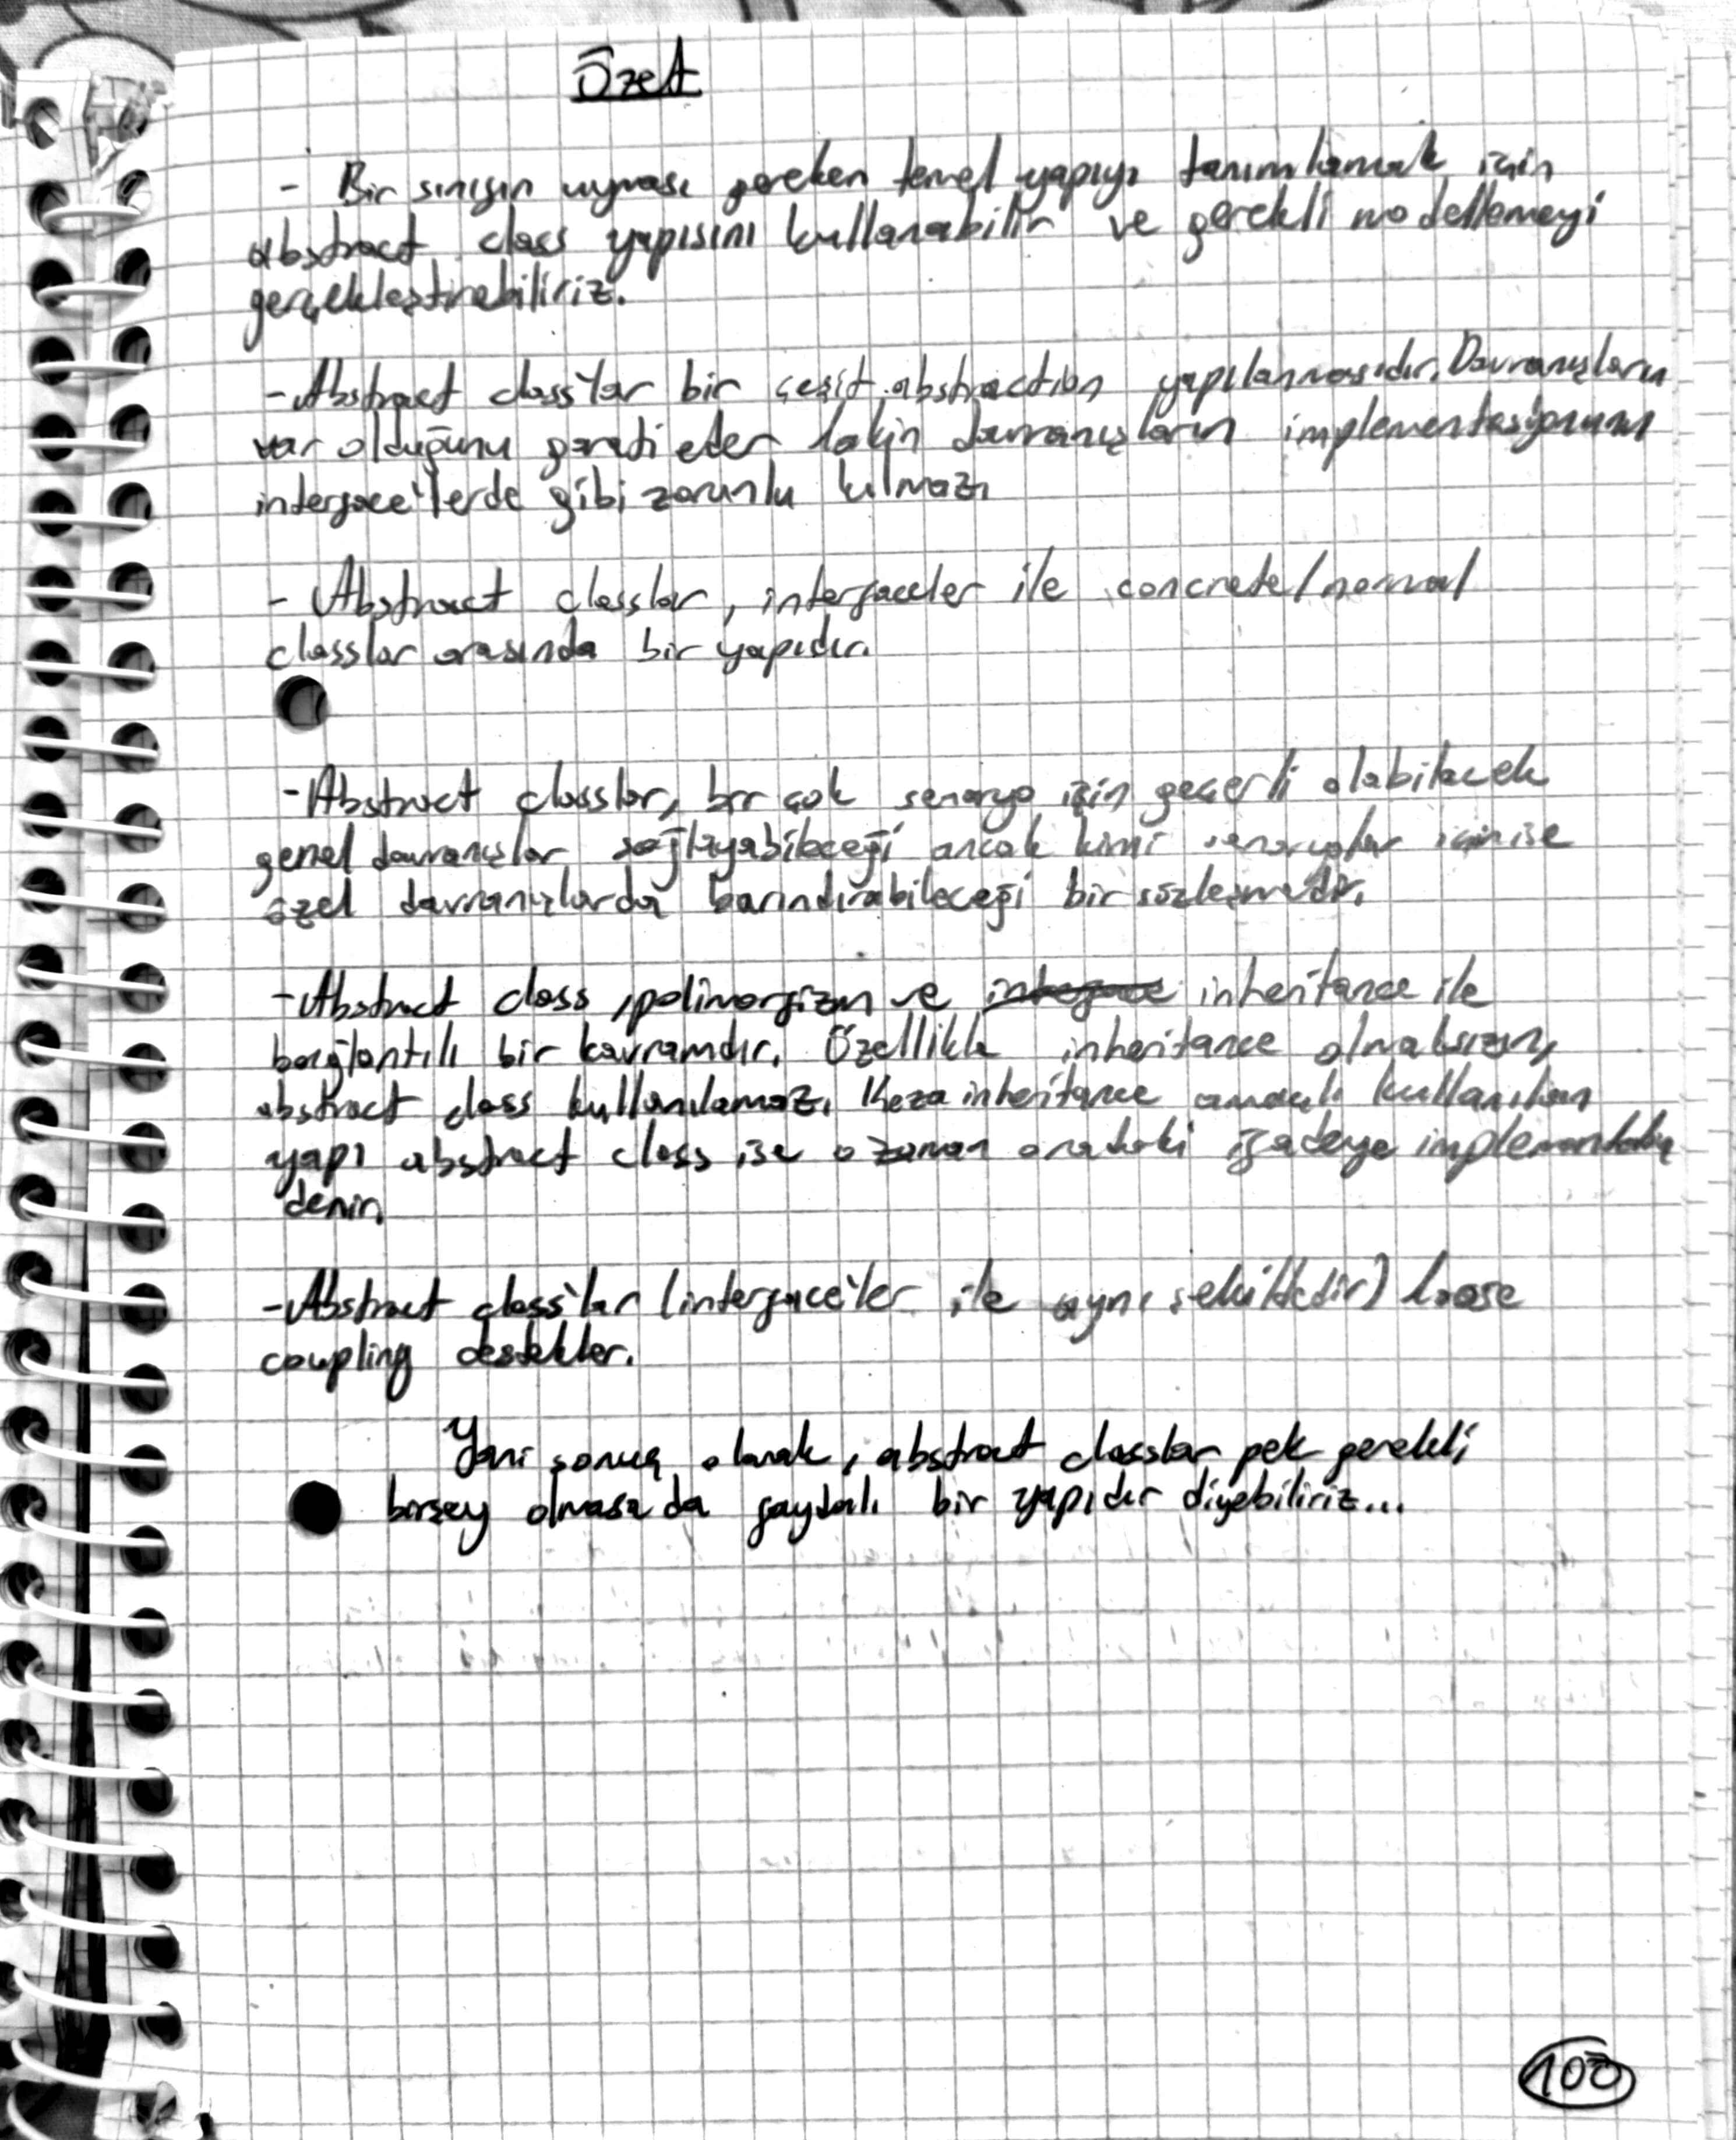 Özet
- Bir sınıfın uyması gereken temel yapıyı tanımlamak için
abstract class yapısını kullanabilir ve gerekli modellemeyi
gerçekleştirebiliriz.
- Abstract class'lar bir çeşit abstraction yapılanmasıdır. Davranışların
var olduğunu garati eder lakin davranışların implementasyonunu
interface'lerde gibi zorunlu kılmaz.
- Abstract classlar, interfaceler ile concrete/normal
classlar arasında bir yapıdır.
- Abstract classlar, bir çok senaryo için geçerli olabilecek
genel davranışlar sağlayabileceği ancak kimi senaryolar için ise
özel davranışlarda barındırabileceği bir sözleşmedir.
- Abstract class, polimorfizm ve interface inheritance ile
bağlantılı bir kavramdır. Özellikle inheritance olmaksızın,
abstract class kullanılamaz. Keza inheritance amaçlı kullanılan
yapı abstract class ise o zaman aradaki ifadeye
denir.
- Abstract class'lar (interface'ler ile aynı şekildedir) loose
coupling destekler.
Yani sonuç olarak, abstract classlar pek gerekli
birşey olmasa da faydalı bir yapıdır diyebiliriz...
100